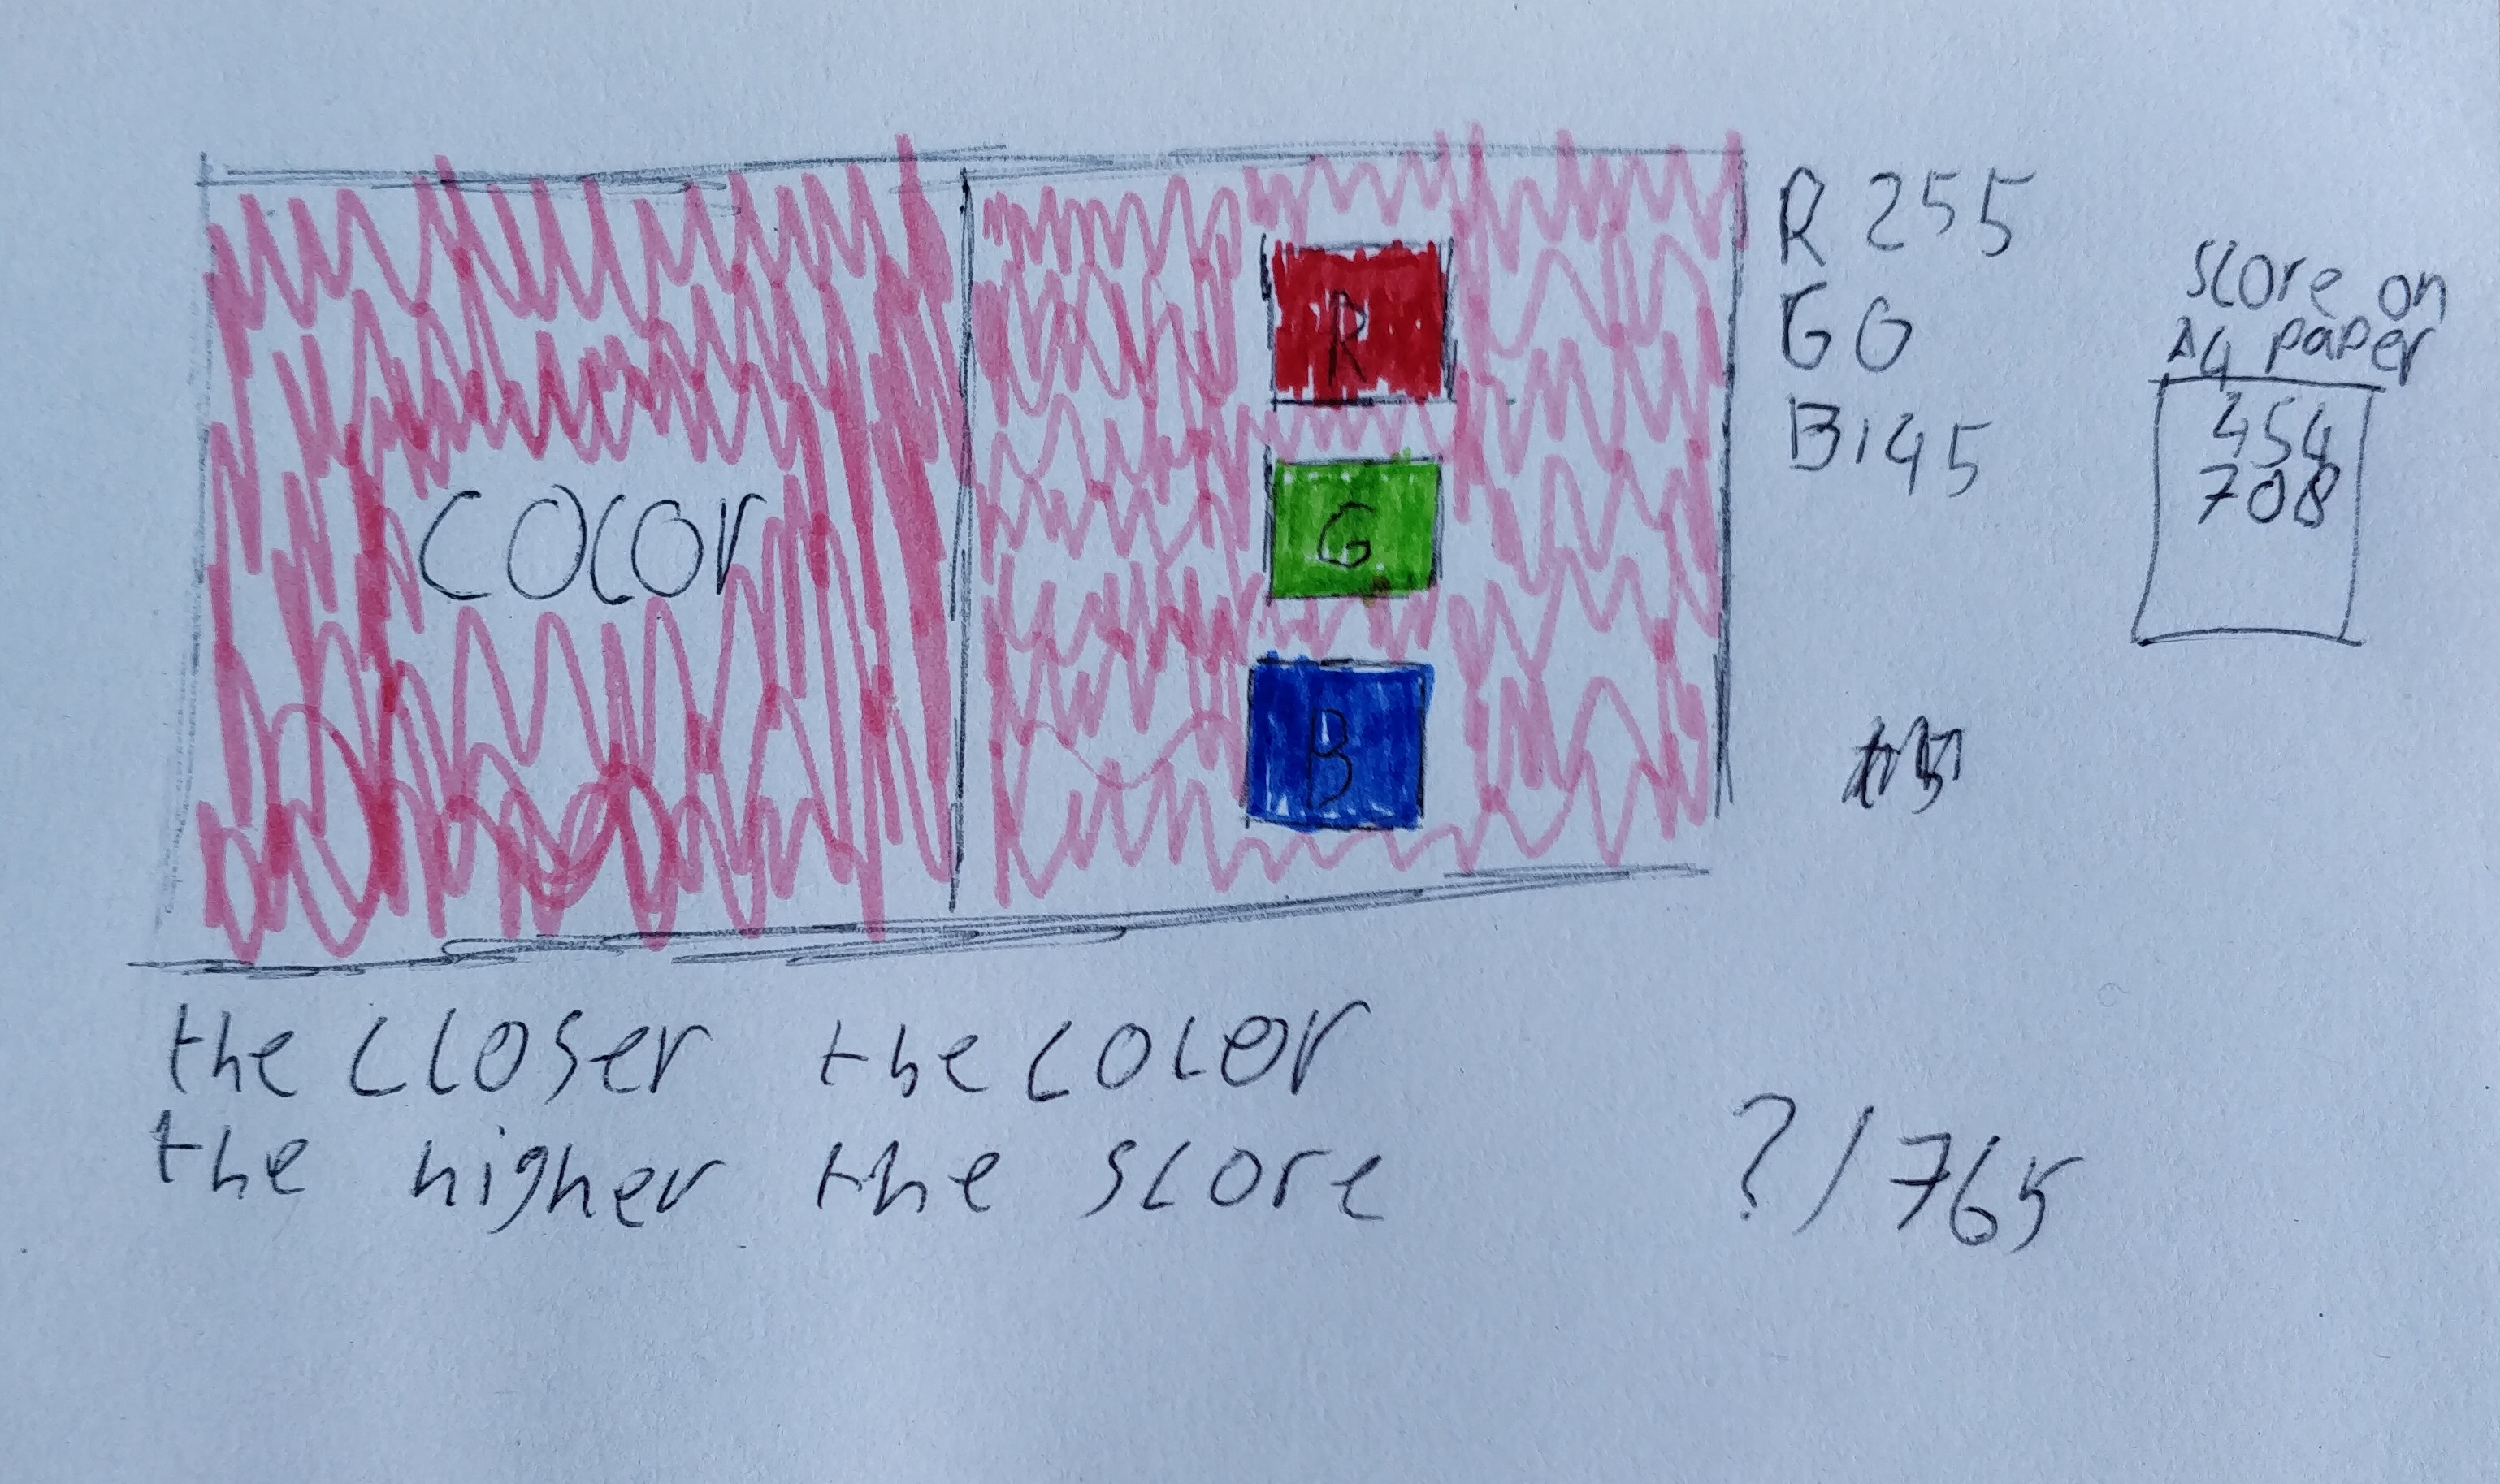 COLOR
R
G
B
R 255
G 0
B 145
score on
A4 paper
454
708
the closer the color
the higher the score
?/765